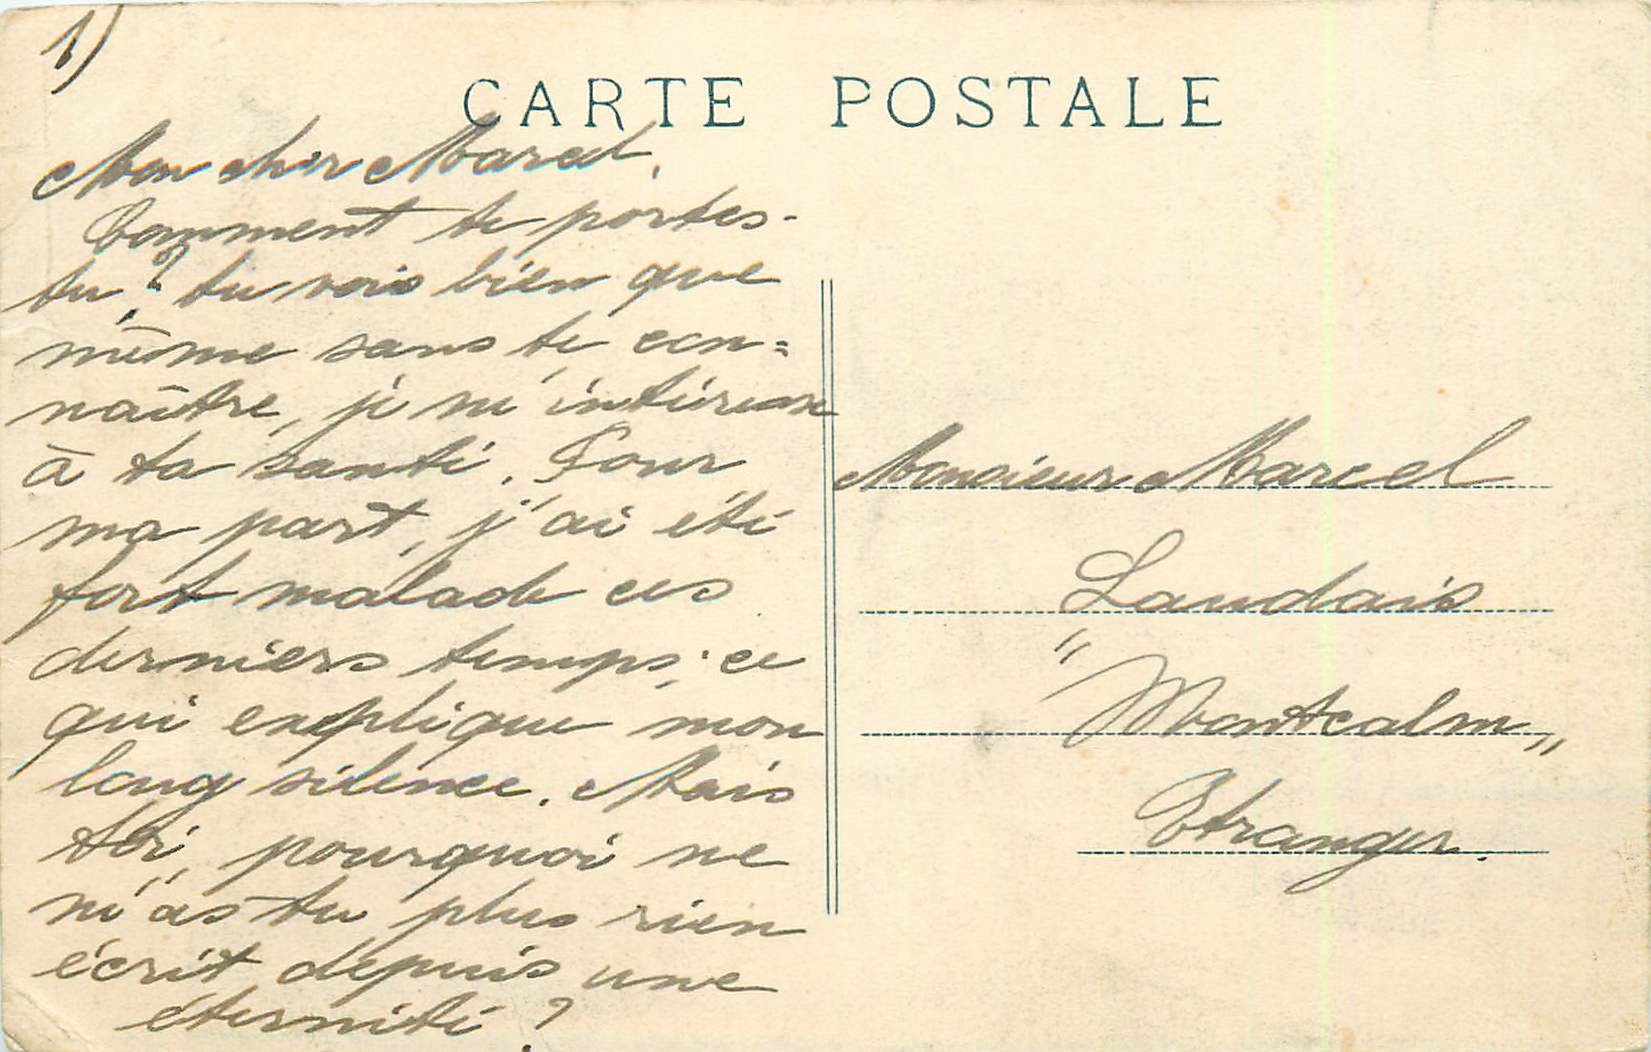 1)
CARTE POSTALE
Mon cher Marcel,
Comment te portes-
tu? tu vois bien que
même sans te con=
naître, je m'intéresse
à ta santé. Pour
ma part, j'ai été
fort malade ces
derniers temps; ce
qui explique mon
long silence. Mais
toi, pourquoi ne
m'as tu plus rien
écrit depuis une
éternité?
Monsieur Marcel
Landais
"Montcalm"
Etranger.